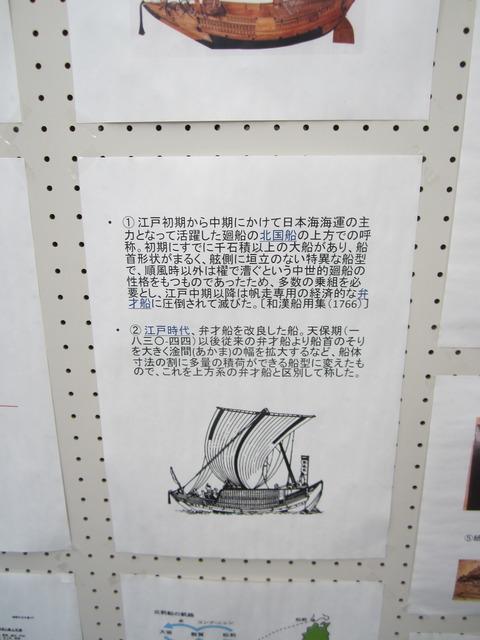 ・ ①江戸初期から中期にかけて日本海海運の主
力となって活躍した廻船の北国船の上方での呼
称。初期にすでに千石積以上の大船があり、船
首形状がまるく、舷側に垣立のない特異な船型
で、順風時以外は櫂で漕ぐという中世的廻船の
性格をもつものであったため、多数の乗組を必
要とし、江戸中期以降は帆走専用の経済的な弁
才船に圧倒されて滅びた。〔和漢船用集(1766)〕
・ ②江戸時代、弁才船を改良した船。天保期(一
八三〇‐四四)以後従来の弁才船より船首のそり
を大きく淦間(あかま)の幅を拡大するなど、船体
寸法の割に多量の積荷ができる船型に変えたも
ので、これを上方系の弁才船と区別して称した。
北前船の航路
大坂
敦賀
松前